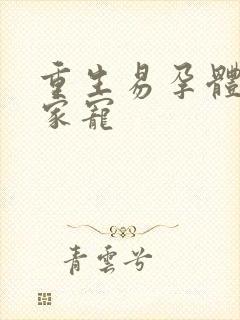 重生易孕體
家寵
青雲兮